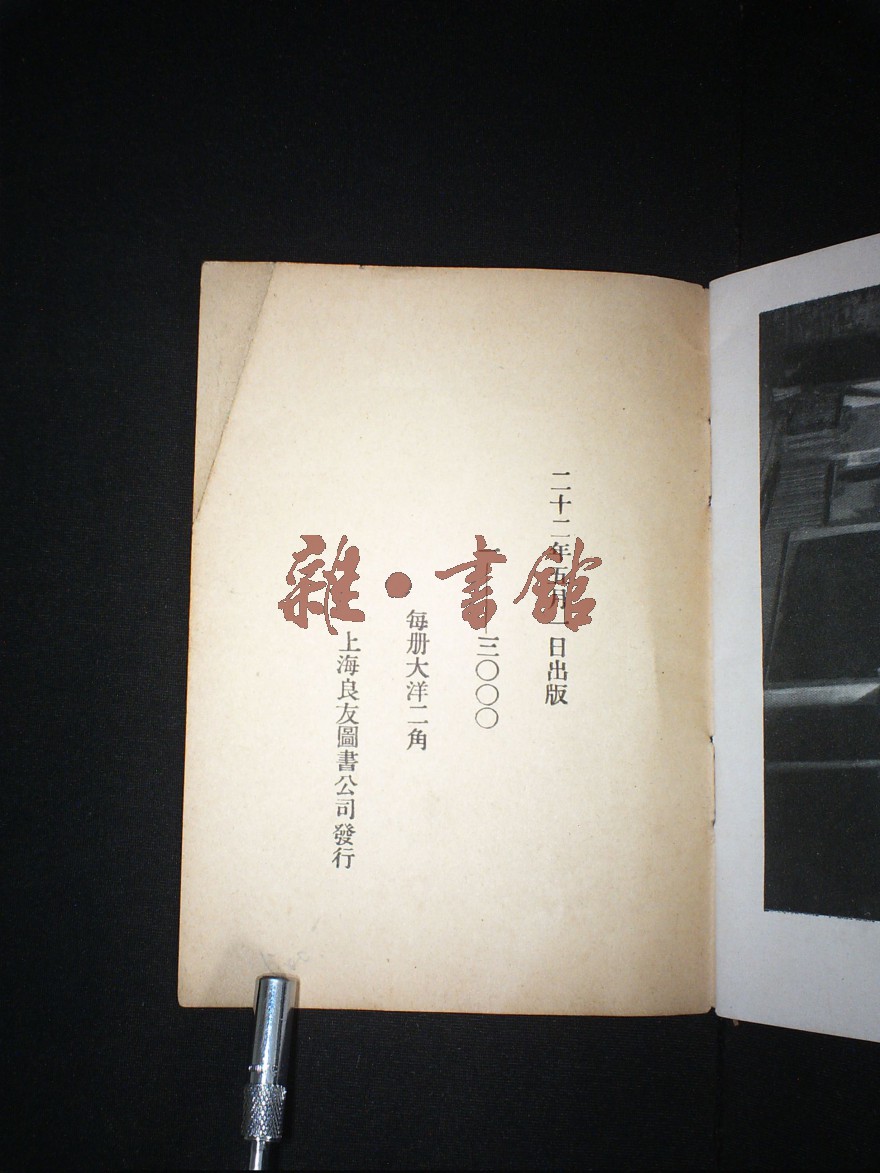 二十二年五月一日出版
一——三〇〇〇
每册大洋二角
上海良友圖書公司發行
雜·書館